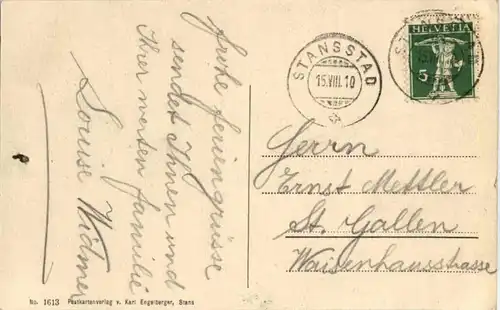 Frohe Feriengrüsse
sendet Ihnen und
Ihrer werten Familie
Louise Widmer
STANSSTAD
15.VIII.10
HELVETIA
5
Herrn
Ernst Mettler
St. Gallen
Waisenhausstrasse
No. 1613 Postkartenverlag v. Karl Engelberger, Stans